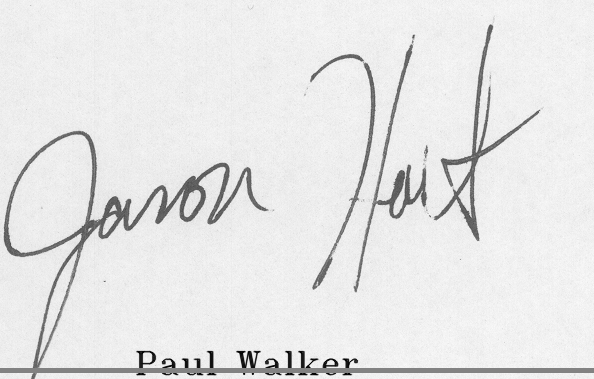 Jason Hart
Paul Walker